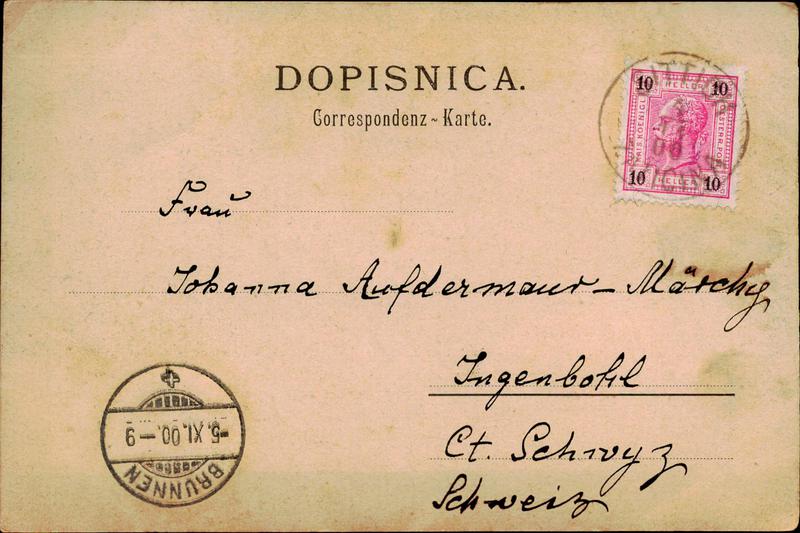 DOPISNICA.
Correspondenz-Karte.
10 HELLER 10
KAIS. KOENIGL. OESTERR. POST
10 HELLER 10
Frau
Johanna Aufdermaur - Märchy
Ingenbohl
Ct. Schwyz
Schweiz
-5. XI. 00. - 9
BRUNNEN